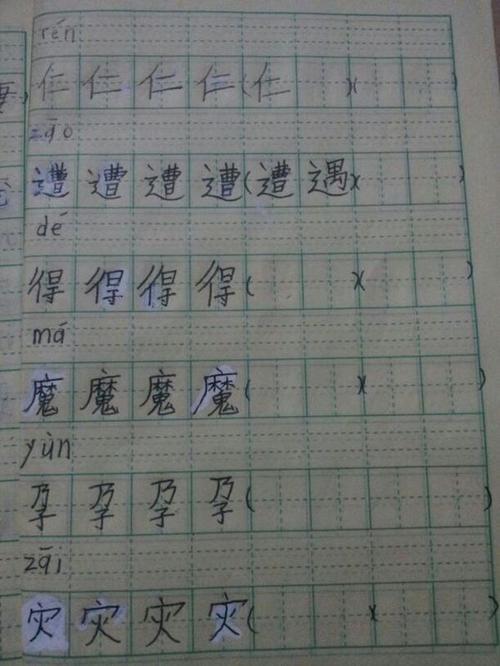 rén
仁 仁 仁 仁(仁 )( )
zāo
遭 遭 遭 遭(遭遇)( )
dé
得 得 得 得( )( )
má
魔 魔 魔 魔( )( )
yùn
孕 孕 孕 孕( )
zāi
灾 灾 灾 灾( )( )